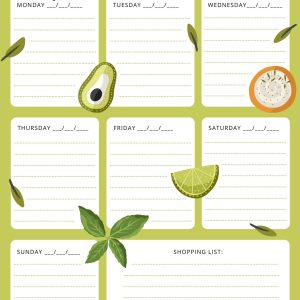 MONDAY ___/___/____
TUESDAY ___/___/____
WEDNESDAY___/___/____
THURSDAY ___/___/____
FRIDAY ___/___/____
SATURDAY ___/___/____
SUNDAY ___/___/____
SHOPPING LIST: